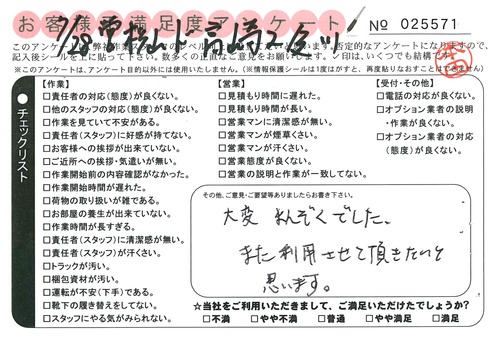 お客様満足度アンケート
№ 025571
7/28
記入後シールを上に貼って下さい。数多くの正直なご意見をお願いします。✓印は、いくつでも結構です。
※このアンケートは、アンケート目的以外には使用いたしません。(※情報保護シールは1度はがすと、再度貼りなおすことはできません)
チェックリスト
【作業】
□責任者の対応(態度)が良くない。
□他のスタッフの対応(態度)が良くない。
□作業を見ていて不安がある。
□責任者(スタッフ)に好感が持てない。
□お客様への挨拶が出来ていない。
□ご近所への挨拶・気遣いが無い。
□作業開始前の内容確認がなかった。
□作業開始時間が遅れた。
□荷物の取り扱いが雑である。
□お部屋の養生が出来ていない。
□作業時間が長すぎる。
□責任者(スタッフ)に清潔感が無い。
□責任者(スタッフ)が汗くさい。
□トラックが汚い。
□梱包資材が汚い。
□運転が不安(下手)である。
□靴下の履き替えをしてない。
□スタッフにやる気がみられない。
【営業】
□見積もり時間に遅れた。
□見積もり時間が長い。
□営業マンに清潔感が無い。
□営業マンが煙草くさい。
□営業マンが汗くさい。
□営業態度が良くない。
□営業の説明と作業が一致してない。
【受付・その他】
□電話の対応が良くない。
□オプション業者の説明
・作業が良くない。
□オプション業者の対応
(態度)が良くない。
その他、ご意見・ご要望等ありましたらお書き下さい。
大変まんぞくでした、
また利用させて頂きたいと
思います。
☆当社をご利用いただきまして、ご満足いただけたでしょうか?
□不満 □やや不満 □普通 □やや満足 □満足